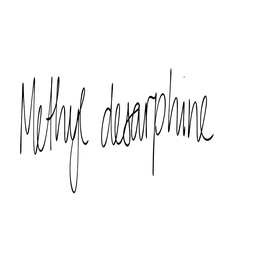 Methyl desarphine